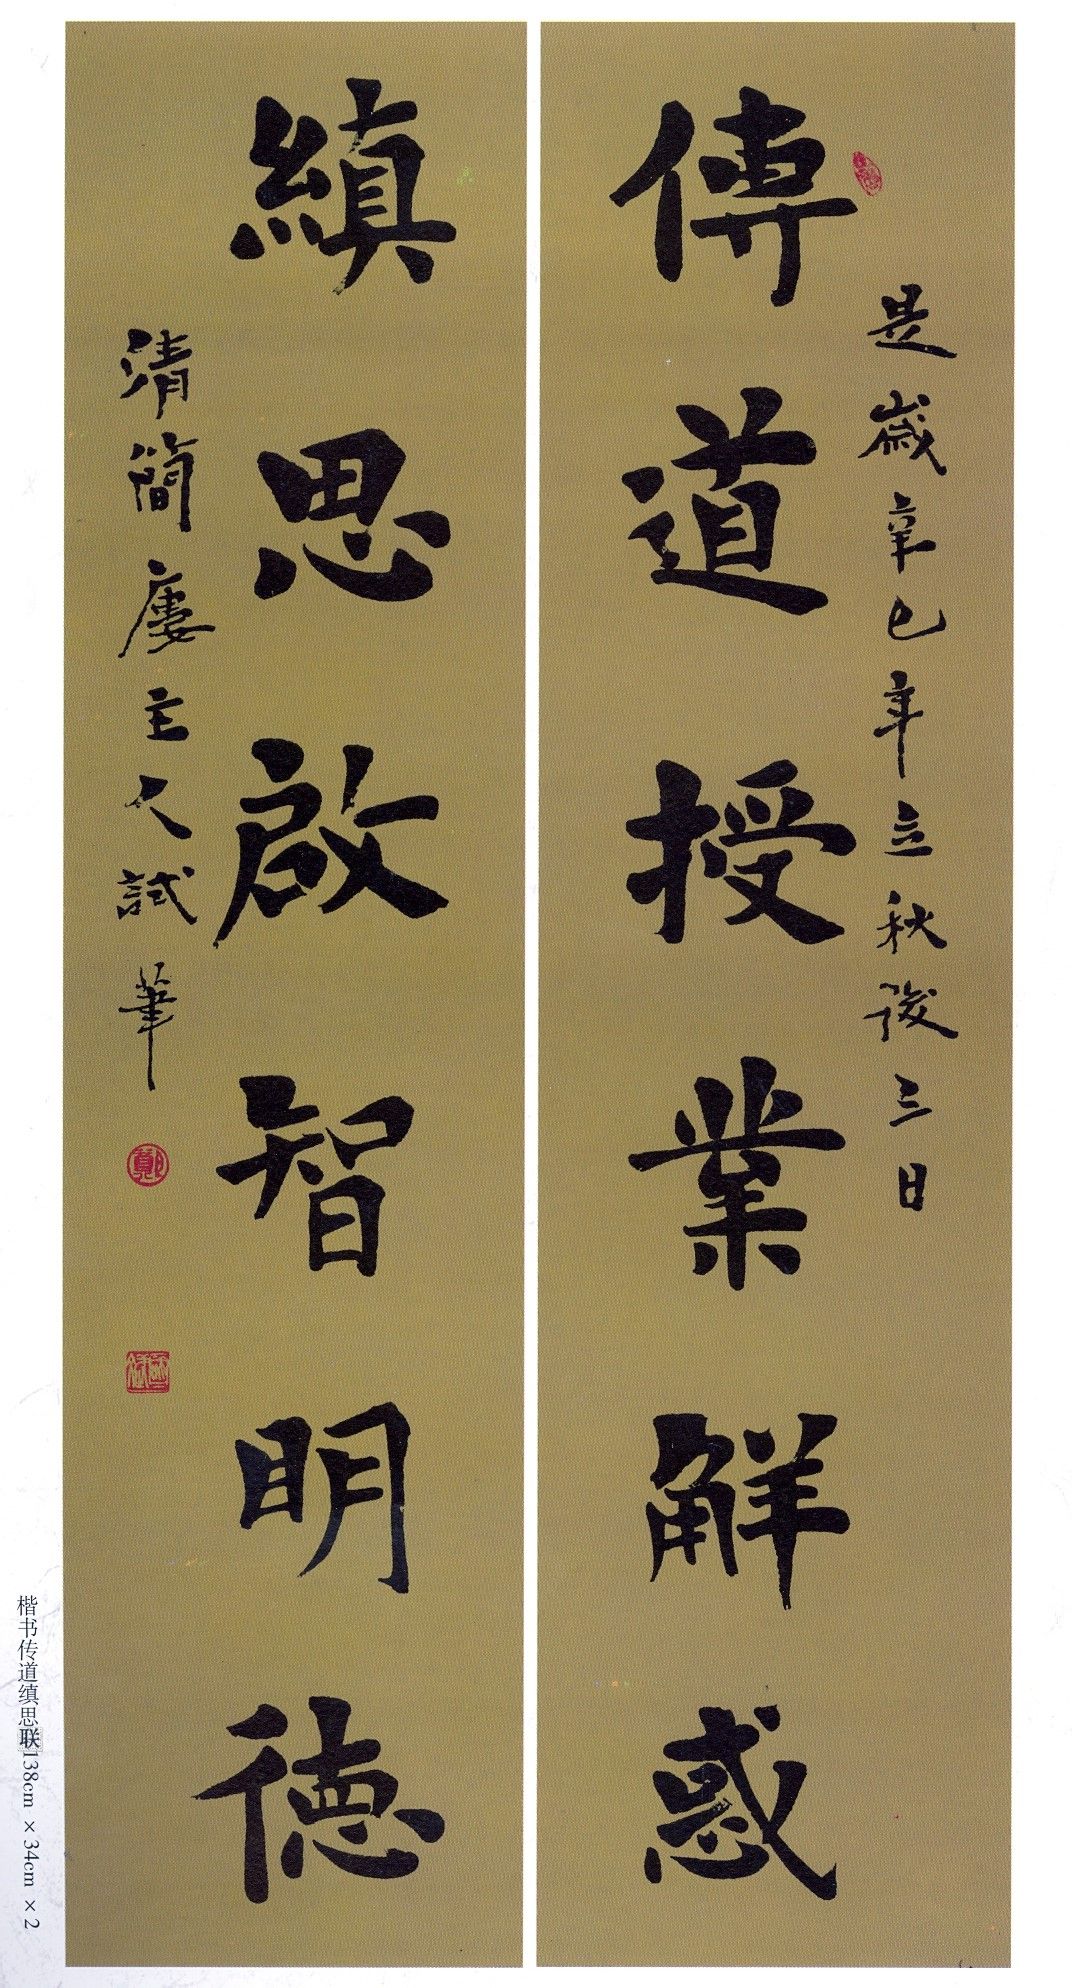 是歲辛巳年立秋後三日
傳道授業解惑
縝思啟智明德
清簡廔主人試筆
鄭
楷书传道缜思联 138cm ×34cm ×2